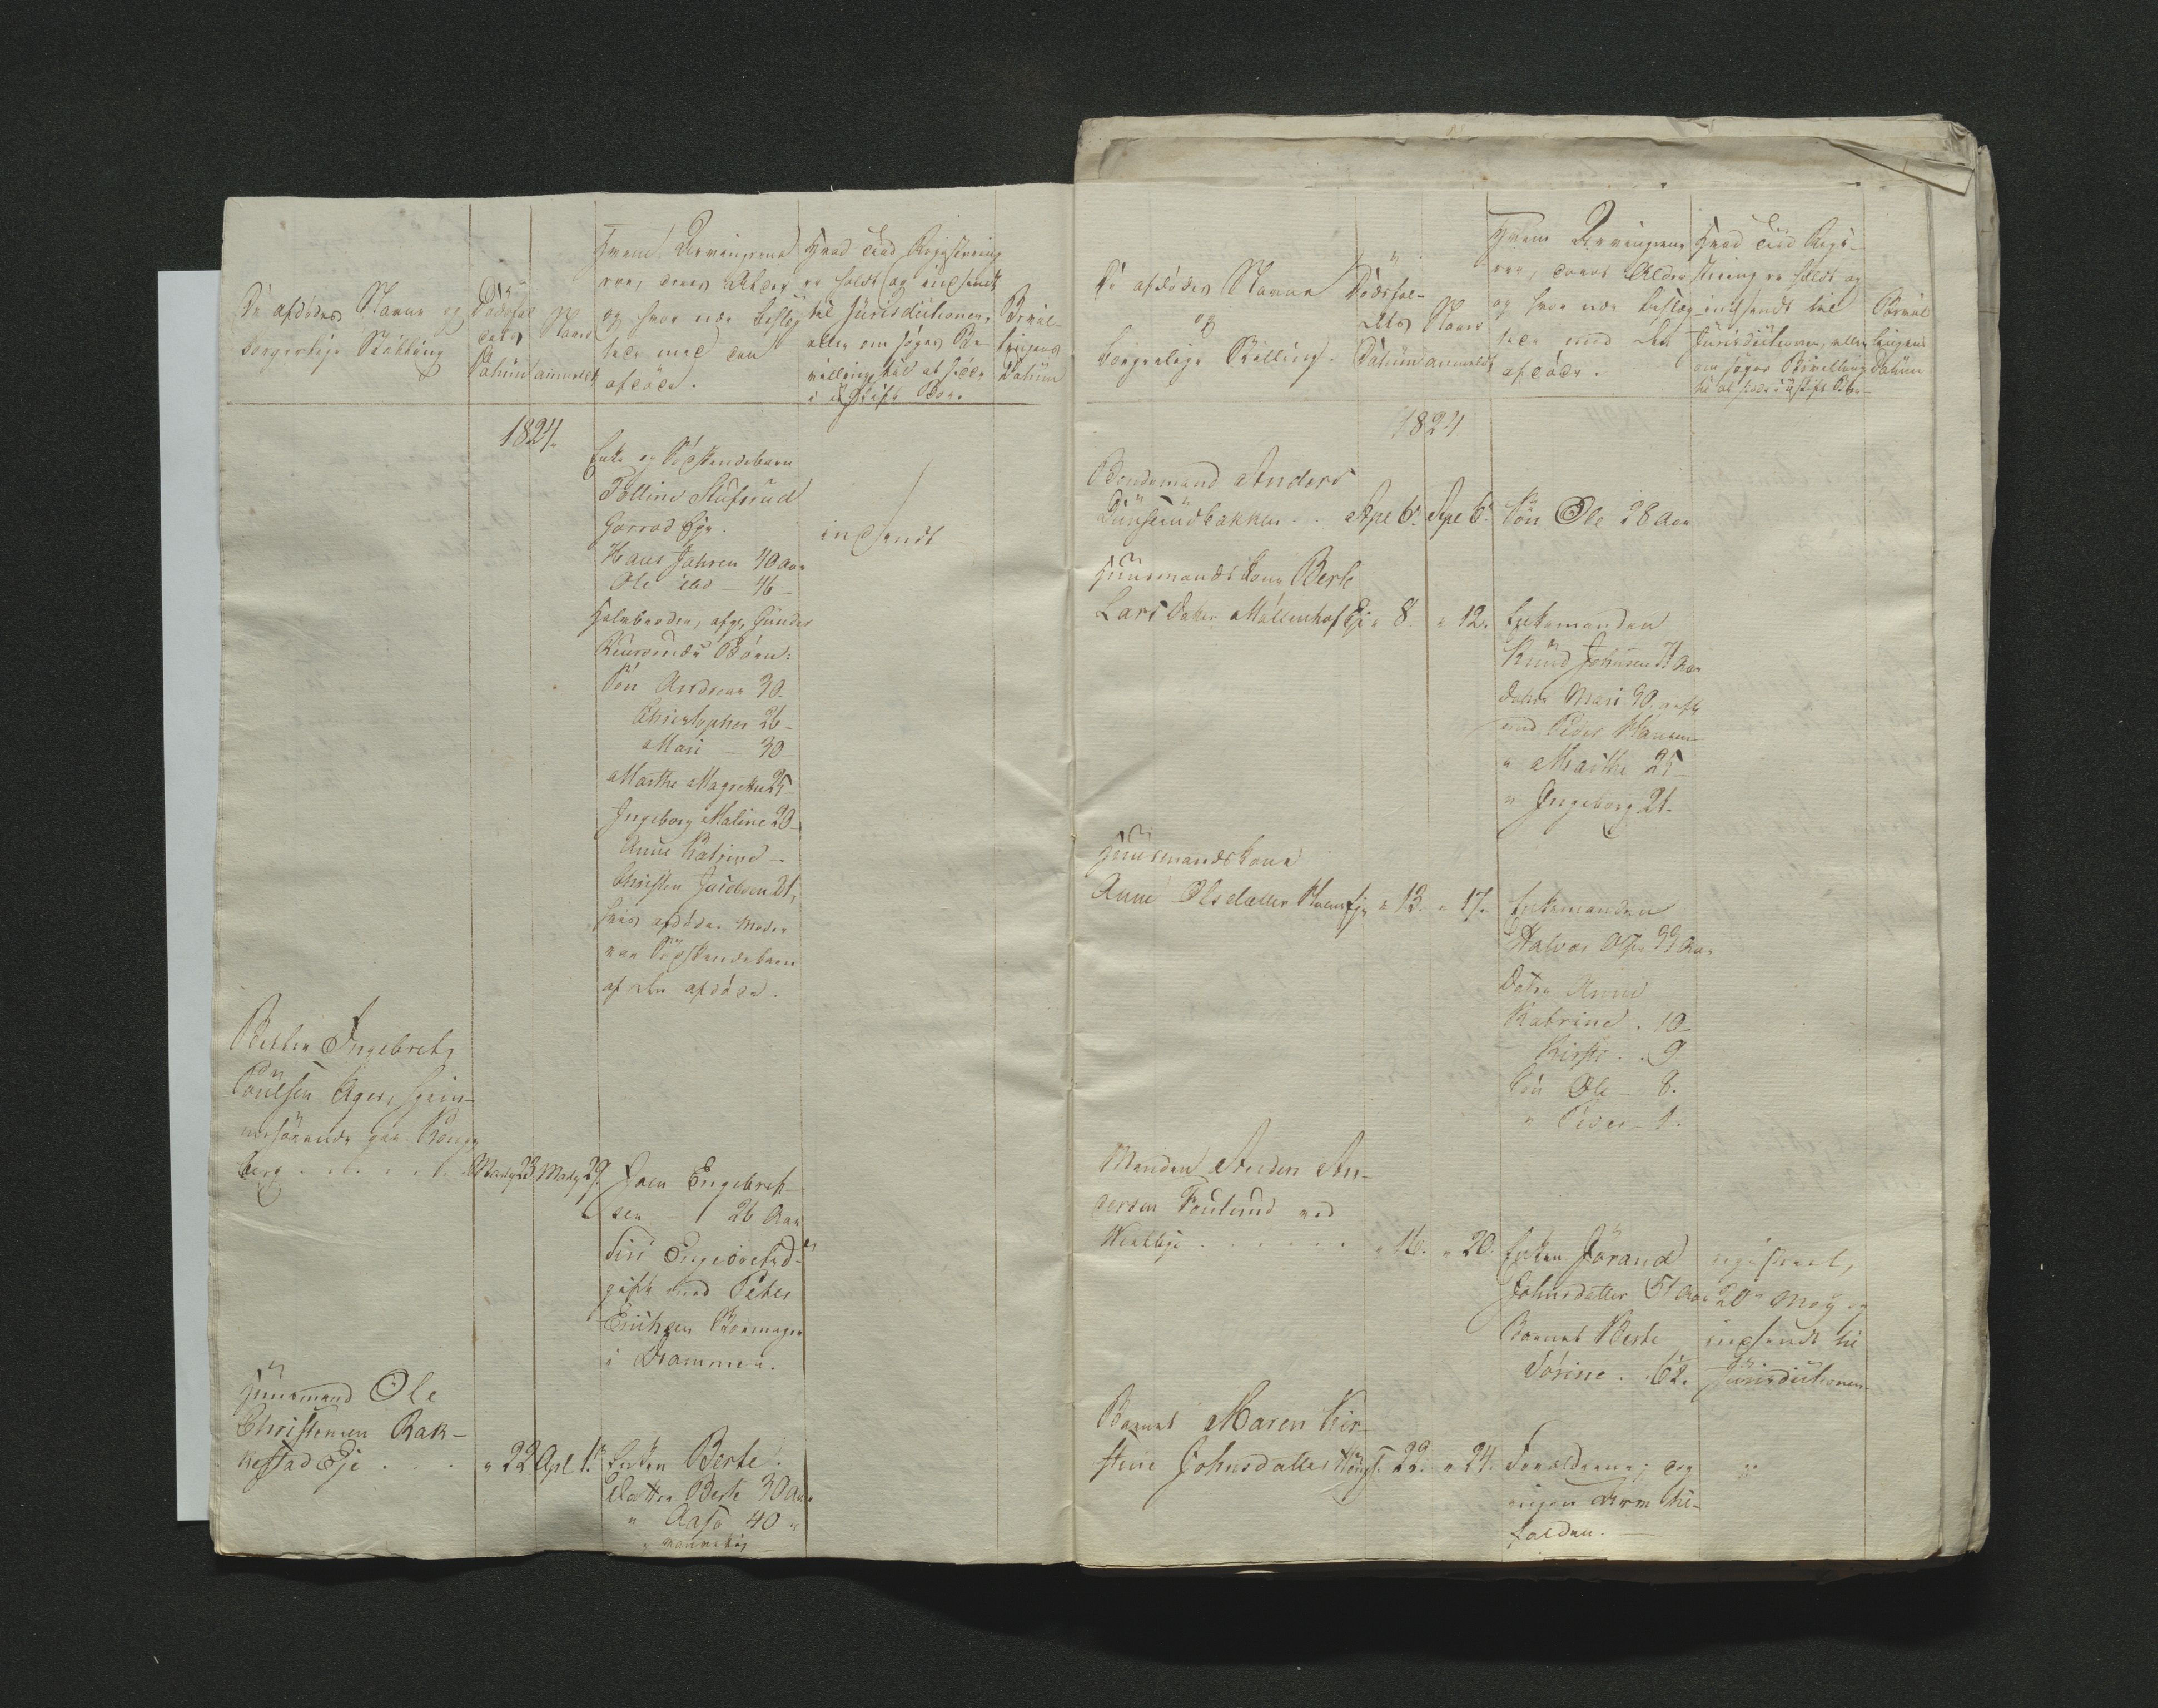 De afdødes Navne og
borgerlige Stilling
Dødsfal
dets
Datum
Naar
anmeldt
Hvem Arvingerne
ere, deres Alder
og hvor nær beslæg
tede med den
afdøde.
Hvad Tiid Registrering
er holdt og indsendt
til Jurisdictionen,
eller om søges Be
villing til at sidde
i uskifte Boe.
Bevil-
lingens
Datum
1824.
Enke og Sødskendebarn
Hans Johsen 40 Aar
Ole ibd 46 –
Halvbroder, afg. Gunder
Børn:
Søn Andreas 30.
Christopher 26 –
Mari – 30
Marthe Magrethe 25 –
Ingeborg Maline 20 –
Anne Katrine –
Christen 21,
hvis afdøde Moder
var Sødskendebarn
af den afdøde.
indsendt
Betler Ingebret
Poulsen Ager, hjem-
mehørende paa Kongs
berg . . . . . . Marty 23 Marty 29.
Joen Engebret-
sen 26 Aar
Siri Engebretsd
gift med Peter
Erichsen
i Drammen.
Huusmand Ole
Christensen Rak-
kestad Eje . . . " 22 Apl. 1.
Enken Berte.
Datter Berte 30 Aar
" Aase 40 "
De afdødes Navne
og
borgerlige Stilling.
Dødsfal-
dets
Datum
Naar
anmeldt
Hvem Arvingerne
ere, deres Alder
og hvor nær beslæg-
tede med den
afdøde.
Hvad Tiid Regi-
strering er holdt og
indsendt til
Jurisdictionen, eller
om søges Bevilling
til at sidde i uskifte Boe
Bevil
lingens
Datum
1824
Bondemand Anders
. . Apl 6. Apl 6. Søn Ole 28 Aar
Huusmandskone Berte
Larsdatter Møllenhof Eje " 8. " 12. Enkemanden
Knud Johnsen 71 Aar
Datter Mari 30, gift
med Peder Hansen
" Marthe 25 –
" Ingeborg 21.
Huusmandskone
Anne Olsdatter Eje " 13. " 17. Enkemanden
Halvor Olsen 39 Aar
Datter Anne
Katrine . 10 –
Kirsti . . 9
Søn Ole – 8.
" Peder – 1.
Manden Anders An-
dersen ved
. . . . . . " 16. " 20. Enken Jørand
Johnsdatter 51 Aar
Barnet Berte
Sørine . 6½.
registreret,
20 May og
indsendt til
Jurisdictionen
Barnet Maren Kir-
stine Johnsdatter 22. " 24. Forældrene; dog
ingen Arv til-
falden.